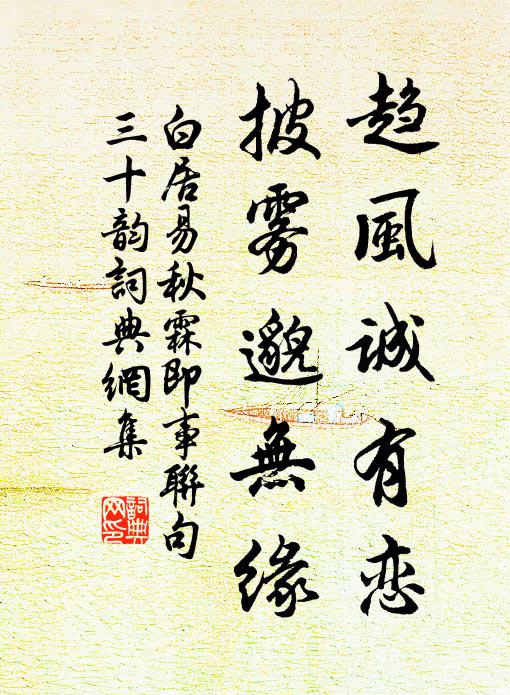 趋風誠有恋
披雾邈無緣
白居易秋霖即事聯句
三十韵詞典網集
詞典網印